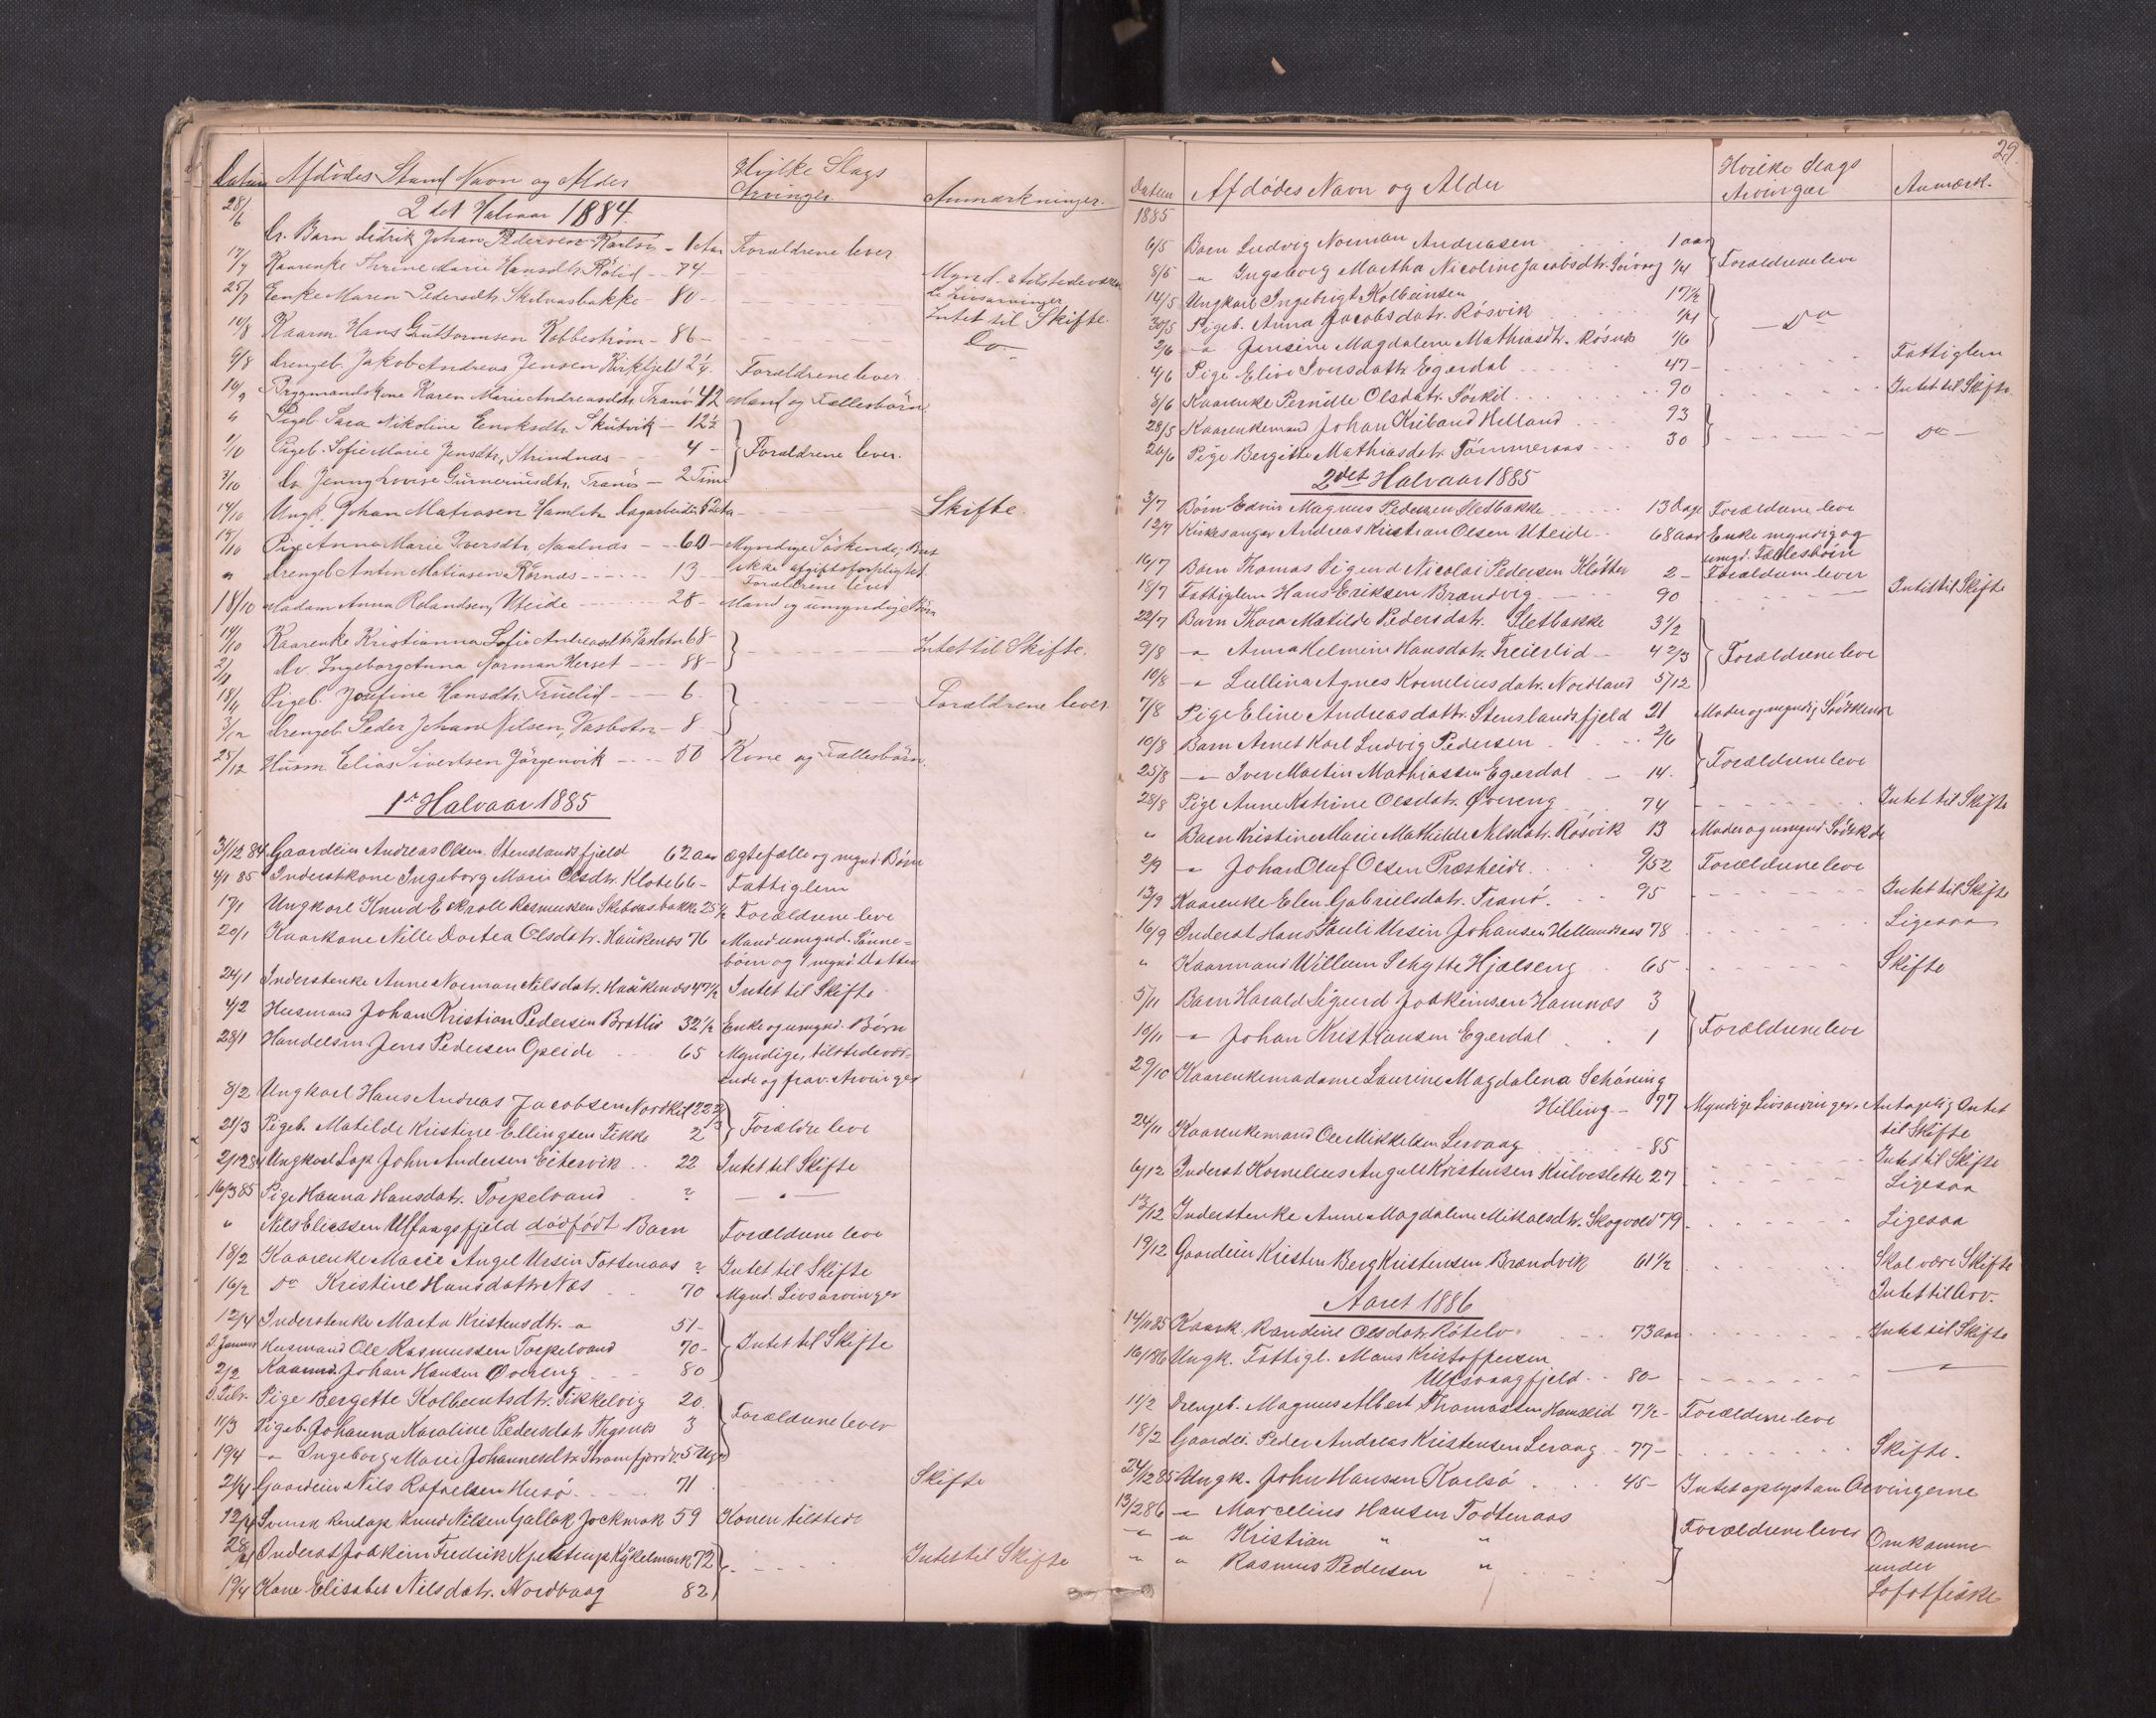 Datum Afdödes Stand Navn og Alder Hvilke Slags Arvinger Anmærkninger.
2det Halvaar 1884.
28/6 Dr. Barn Didrik Johan Pedersen Karlsö - 1 Aar Forældrene lever
17/7 Kaarenke Thrine Marie Hansdtr. Rölid - 74 -
25/7 Enke Maren Pedersdtr. Skilvasbakke - 80 - Mynd. & tilstedeværende Livsarvinger
10/8 Kaarm. Hans Guttormsen Kobbeström - 86 - Intet til Skifte.
9/8 Drengeb. Jakob Andreas Jensen Kirkfjeld 2 1/4 Forældrene lever. Do.
10/9 Brygmands Kone Karen Marie Andreasdtr. Tranö 42 Mand og Fællesbörn.
" Pigeb. Sara Nikoline Enoksdtr. Skutvik - 12 1/2
1/10 Pigeb. Sofie Marie Jensdtr. Strindnæs - 4 - Forældrene lever.
3/10 Do Jenny Lovise Gunneriusdtr. Tranö - 2 Time
14/10 Ungk. Johan Matiasen Hamletn Dagarbeider Skifte.
14/10 Pige Anna Marie Iversdtr. Naalnæs - 60 - Myndige Söskende, Boet
" Drengeb. Anton Matiasen Rörnæs - 13 - ikke afgiftsforpligtet. Forældrene lever
18/10 Madam Anna Rolandsen, Uteide - 28 - Mand og umyndige Börn
14/10 Kaarenke Kristianna Sofie Andreasdtr. Vasbotn 68 -
2/11 Do. Ingeborg Anna Norman Herset - 88 - Intet til Skifte.
18/11 Pigeb. Josefine Hansdtr. Fruelid - 6.
3/12 Drengeb. Peder Johan Nilsen, Vasbotn - 8 Forældrene lever
25/12 Husm. Elias Sivertsen Jörgenvik - 50 Kone og Fællesbörn.
1ste Halvaar 1885
31/12 84 Gaardeier Andreas Olsen Stenslandsfjeld 62 aar Ægtefælle og mynd. Börn
4/1 85 Inderstkone Ingeborg Marie Olsdtr. Klote 66 - Fattiglem
17/1 Ungkarl Knud Eskrold Rasmussen Skilvasbakke 25 1/2 Forældrene leve
20/1 Kaarkone Nille Dortea Olsdatr. Haukenæs 76 Mand umynd. Sönne=
börn og 1 mynd. Datter
24/1 Inderstenke Anne Norman Nilsdatr. Haukenæs 47 1/2 Intet til Skifte
4/2 Husmand Johan Kristian Pedersen Bratlid 32 1/2 Enke og umynd. Börn
28/1 Handelsm. Jens Pedersen Opeide 65 Myndige, tilstedevær-
ende og frav. Arvinger
8/2 Ungkarl Hans Andreas Jacobsen Nordkil 22 1/2
21/3 Pigeb. Matilde Kristine Ellingsen Tikke 2 Forældre leve
2/12 84 Ungkarl Lap John Andersen Eitervik 22 Intet til Skifte
16/3 85 Pige Hanna Hansdatr. Torpelvand ? - " -
" Nils Eliassen Ulfsvaagsfjeld dødfødt Barn Forældrene leve
18/2 Kaarenke Marie Angel Ursin Tostenaas ? Intet til Skifte
16/2 Do Kristine Hansdatr. Næs 70 Mynd. Livsarvinger
12/4 Inderstenke Marta Kristensdtr. " 51 -
D. Januar Husmand Ole Rasmussen Torpelvand 70 - Intet til Skifte
2/2 Kaarmd. Johan Hansen Overeng 80
D. Febr. Pige Bergette Kolbentsdtr. Tikkelvig 20.
11/3 Pigeb. Johanna Karoline Pedersdatr. Thysnæs 3 Forældrene lever
19/4 " Ingeborg Marie Johannesdtr. Strømfjord 5 Uger
21/4 Gaardeier Nils Rafaelsen Husö 71 Skifte
12/4 Svensk Renlap Knud Nilsen Gallok Jockmok 59 Konen tilstede
28/4 Inderst Joakim Fredrik Kjelstrup Kykelmark 72 Intet til Skifte
19/4 Kone Elisabet Nilsdatr. Nordvaag 82
29.
Datum Afdødes Navn og Alder Hvilke Slags Arvinger Anmærk.
1885
6/5 Barn Ludvig Norman Andreasen 1 aar
8/5 " Ingeborg Martha Nicoline Jacobsdtr. Sörvaag 1/4 Forældrene leve
14/5 Ungkarl Ingebrigt Kolbeinsen 17 1/2
30/5 Pigeb. Anna Jacobsdatr. Rösvik 1/4 - Do -
2/6 " Jensine Magdalene Mathiasdtr. Rösnæs 1/6
4/6 Pige Elive Iversdatr. Egerdal 47 - Fattiglem
8/6 Kaarenke Pernille Olsdatr. Sörkil 90 Intet til Skifte
28/5 Kaarenkemand Johan Kriband Helland 93
26/6 Pige Bergitte Mathiasdatr. Tömmeraas 30 Do -
2det Halvaar 1885
3/7 Børn Edvin Magnus Pedersen Sletbakke 13 Dage Forældrene leve
12/7 Kirkesanger Andreas Kristian Olsen Uteide 68 aar Enke myndig og
umynd. Fællesbörn
16/7 Barn Thomas Sigurd Nicolai Pedersen Klötten 2 - Forældrene lever
18/7 Fattiglem Hans Eriksen Brændvig 90 Intet til Skifte
22/7 Barn Thora Matilde Pedersdatr. Sletbakke 3 1/2
9/8 " Anna Helmine Hansdatr. Freierlid 4 2/3 Forældrene leve
10/8 " Lullina Agnes Korneliusdatr. Nordland 5/12
7/8 Pige Eline Andreasdattr. Stenslandsfjeld 21 Moder og myndig Södskende
10/8 Barn Arnet Karl Ludvig Pedersen 2/6
25/8 " Iver Martin Mathiassen Egerdal 14. Forældrene leve
28/8 Pige Anne Katrine Olsdatr. Øvereng 74 Intet til Skifte
" Barn Kristine Marie Mathilde Nilsdatr. Rösvik 13 Moder og umynd. Södsk.
2/9 " Johan Oluf Olsen Præsteide 9/52 Forældrene leve
13/9 Kaarenke Elen Gabrielsdatr. Tranö. 95 Intet til Skifte
16/9 Inderst Hans Pauli Ursin Johansen Hellandsaas 78 Ligesaa
" Kaarmand Willum Schytte Hjelseng 65 Skifte
5/11 Barn Harald Sigurd Joakimsen Hamnæs 3
10/11 " Johan Kristiansen Egerdal 1 Forældrene leve
29/10 Kaarenkemadame Laurine Magdalena Schöning
Hilling - 77 Myndige Livsarvinger. Antagelig Intet
til Skifte
24/11 Kaarenkemand Ole Mikkelsen Lervaag 85 Intet til Skifte
6/12 Inderst Kornelius Angell Kristensen Kulveslette 27 Ligesaa
13/12 Inderstenke Anne Magdalene Mikalsdtr. Skogvold 79 Ligesaa
19/12 Gaardeier Kristen Berg Kristensen Brændvik 61 1/2 Skal være Skifte
Intet til Arv.
Aaret 1886
14/11 85 Kaark. Randine Olsdatr. Rötelv. 73 aar Intet til Skifte
16/1 86 Ungk. Fattigl. Mons Kristoffersen
Ulfsvaagfjeld 80 - "
11/2 Drengeb. Magnus Albert Thomassen Hamreid 7 1/2 - Forældrene leve
18/2 Gaardei. Peder Andreas Kristensen Lervaag 77 - Skifte.
24/12 85 Ungk. John Hansen Karlsö 45 - Intet oplyst om Arvingerne
13/2 86 " Marcelius Hansen Todtenaas
" " Kristian " " Forældrene lever Omkomne
" " Rasmus Pedersen " under
Lofotfiske